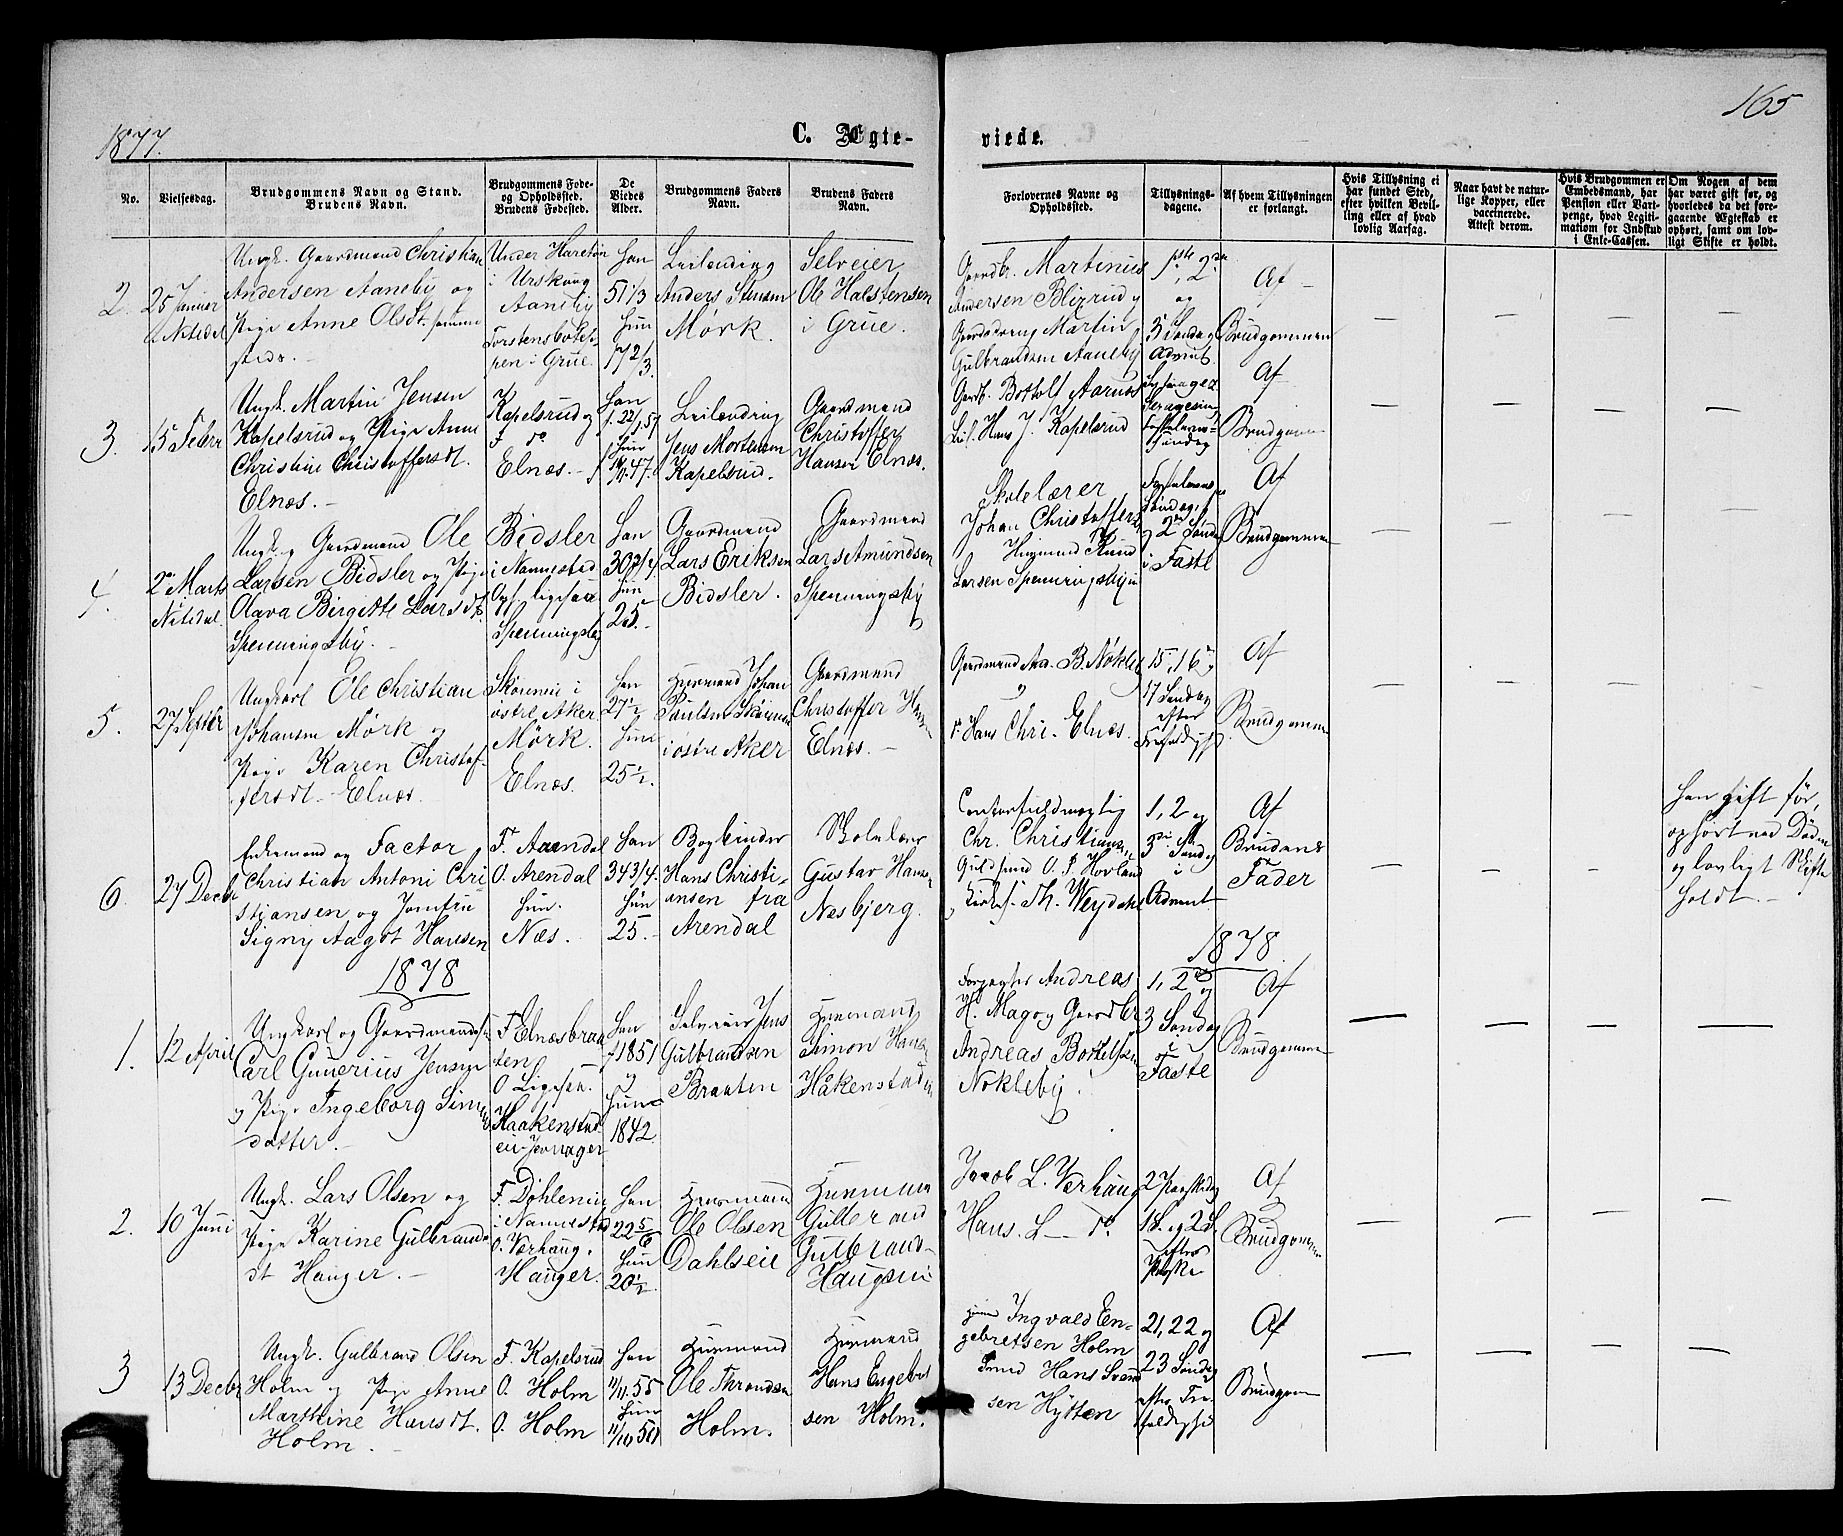 1877.
C. Ægte-
viede.
165
No.
Vielsesdag.
Brudgommens Navn og Stand.
Brudens Navn.
Brudgommens Føde-
og Opholdssted.
Brudens Fødested.
De
Viedes
Alder.
Brudgommens Faders
Navn.
Brudens Faders
Navn.
Forlovernes Navne og
Opholdssted.
Tillysnings-
dagene.
Af hvem Tillysningen
er forlangt.
Hvis Tillysning ei
har fundet Sted,
efter hvilken Bevil-
ling eller af hvad
lovlig Aarsag.
Naar havt de natur-
lige Kopper, eller
vaccinerede.
Attest derom.
Hvis Brudgommen er
Embedsmand, har
Pension eller Vart-
penge, hvad Legiti-
mation for Indskud
i Enke-Cassen.
Om Nogen af dem
har været gift før, og
hvorledes da det fore-
gaaende Ægteskab er
ophørt, samt om lov-
ligt Skifte er holdt.
2.
25 Januar
Nitedal
Ungk. Gaardmand Christian
Andersen Aaneby og
Pige Anne Olsdt. samme
steds. -
i Urskoug
Aaneby
pen i Grue.
Han
51 1/3
Hun
17 2/3.
Leilending
Anders Steusen
Mørk.
Selveier
Ole Halstensen
i Grue.
Gaardbr. Martinus
Andersen Blizrud
Martin
Gulbrandsen Aaneby
1ste, 2den
og
3 Søndag
Advent.
Af
Brudgommen
3.
15 Febr
Ungk. Martin Jensen
Kapelsrud og Pige Anne
Christine Christoffersdt.
Elnæs. -
Kapelsrud og
F do
Elnæs. -
Han
f. 22/1.57
Hun
47.
Leilending
Jens Mortensen
Kapelsrud.
Gaardmand
Christoffer
Hansen Elnæs.
Gaardb. Bottolf Aarnes
Leil. Hans J. Kapelsrud
Seragesima
Fastelavns-
søndag
Af
Brudgommen
4.
2den Marts
Nitedal.
Ungk. og Gaardmand Ole
Larsen Bidsler og Pige
Olava Birgitte Larsdt.
Spenningsby. -
Bidsler
i Nannestad
Oph. ligesaa
Spenningsby
Han
30 3/4
Hun
25. -
Gaardmand
Lars Eriksen
Bidsler.
Gaardmand
Lars Amundsen
Spenningsby
Skolelærer
Johan Christoffersen
Larsen Spenningsby
Fastelavns
Søndag,
2den Søndag
i Faste
Af
Brudgommen
5.
27 Septbr
Ungkarl Ole Christian
Johansen Mørk og
Pige Karen Christof-
fersdt. Elnæs.
i
østre Aker
Mørk.
Elnæs.
Han
27 1/2
Hun
25 1/2.
Husmand Johan
Paulsen
i østre Aker
Gaardmand
Christoffer Hansen
Elnæs. -
Gaardmand And. B. Nøkleby
og
Hans Chri. Elnæs.
15, 16 og
17 Søndag
efter
Trefoldigh
Af
Brudgommen
6
27 Decbr
Enkemand og Factor
Christian Antoni Chri
stiansen og Jomfru
Signy Aagot Hansen
F. Arendal
O. Arendal
Hun.
Næs.
Han
34 3/4.
Hun
25. -
Bogbinder
Hans Christi-
ansen fra
Arendal
Skolelærer
Gustav Hansen
Nesbjerg.
Contorfuldmægtig
Chr. Christiansen
Guldsmed O. P. Hovland
Th. Weydahl
1, 2 og
3die Søndag
i
Advent
Af
Brudens
Fader
Han gift før,
ophørt ved Døden
og lovligt Skifte
holdt. -
1878
1878.
1.
12 April
Ungkarl og Gaardmandssøn
Carl Gunerius Jensen
og Pige Ingeborg Simens
datter. -
F. Elnæsbraa
ten
O Ligesaa.
Haakenstad
eie Jevnager
Han
f 1851
og
Hun
1842
Selveier Jens
Gulbrandsen
Braaten
Husmand
Simon Hansen
Håkenstadeie
Forpagter Andreas
H. Mago Gaardbr
Andreas Bottelsen
Nøkleby.
1, 2den og
3 Søndag
i
Faste
Af
Brudgommen
2.
10 Juni
Ungk. Lars Olsen og
Pige Karine Gulbrands
dt Hauger. -
F. Døhleneie
i Nannestad
O. Værhaug.
Hauger.
Han
22 5/6
Hun
20 1/2
Husmand
Ole Olsen
Dahlseie
Husmand
Gulbrand
Gulbrand-
Haugseie
Jacob L. Værhaug
Hans. L - do
2 Paaskedag
1 S. og 2 S.
efter
Paaske
Af
Brudgommen
3
13 Decbr
Ungk. Gulbrand Olsen
Holm og Pige Anne
Marthine Hansdt.
Holm. -
F. Kapelsrud
O. Holm
O. Holm
Han
11/11.55
Hun
11/10 50
Husmand
Ole Throndsen
Holm.
Husmand
Hans Engebret
sen Holm.
Ingvald En-
gebretsen Holm
Smed Hans Svend
sen Hytten
21, 22 og
23 Søndag
efter Tre-
foldighed
Af
Brudgommen